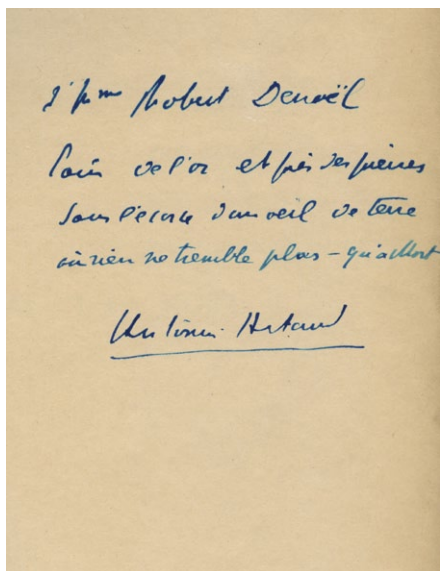 Robert Denoël
Loin de l'or et près des pierres
dans l'écorce d'un œil de terre
où rien ne tremble plus - qu'a Mort
Antonin Artaud